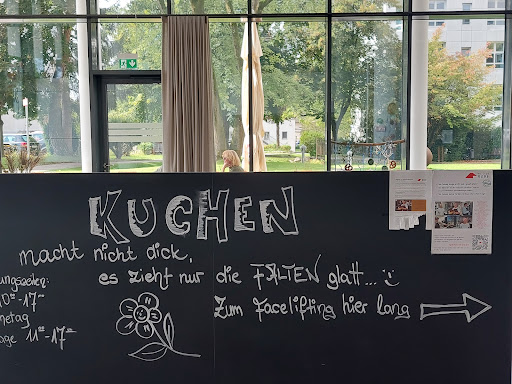 KUCHEN
macht nicht dick,
es zieht nur die FALTEN glatt... :)
Zum Facelifting hier lang
ungszeiten:
10°°-17°°
netag
age 11°°-17°°